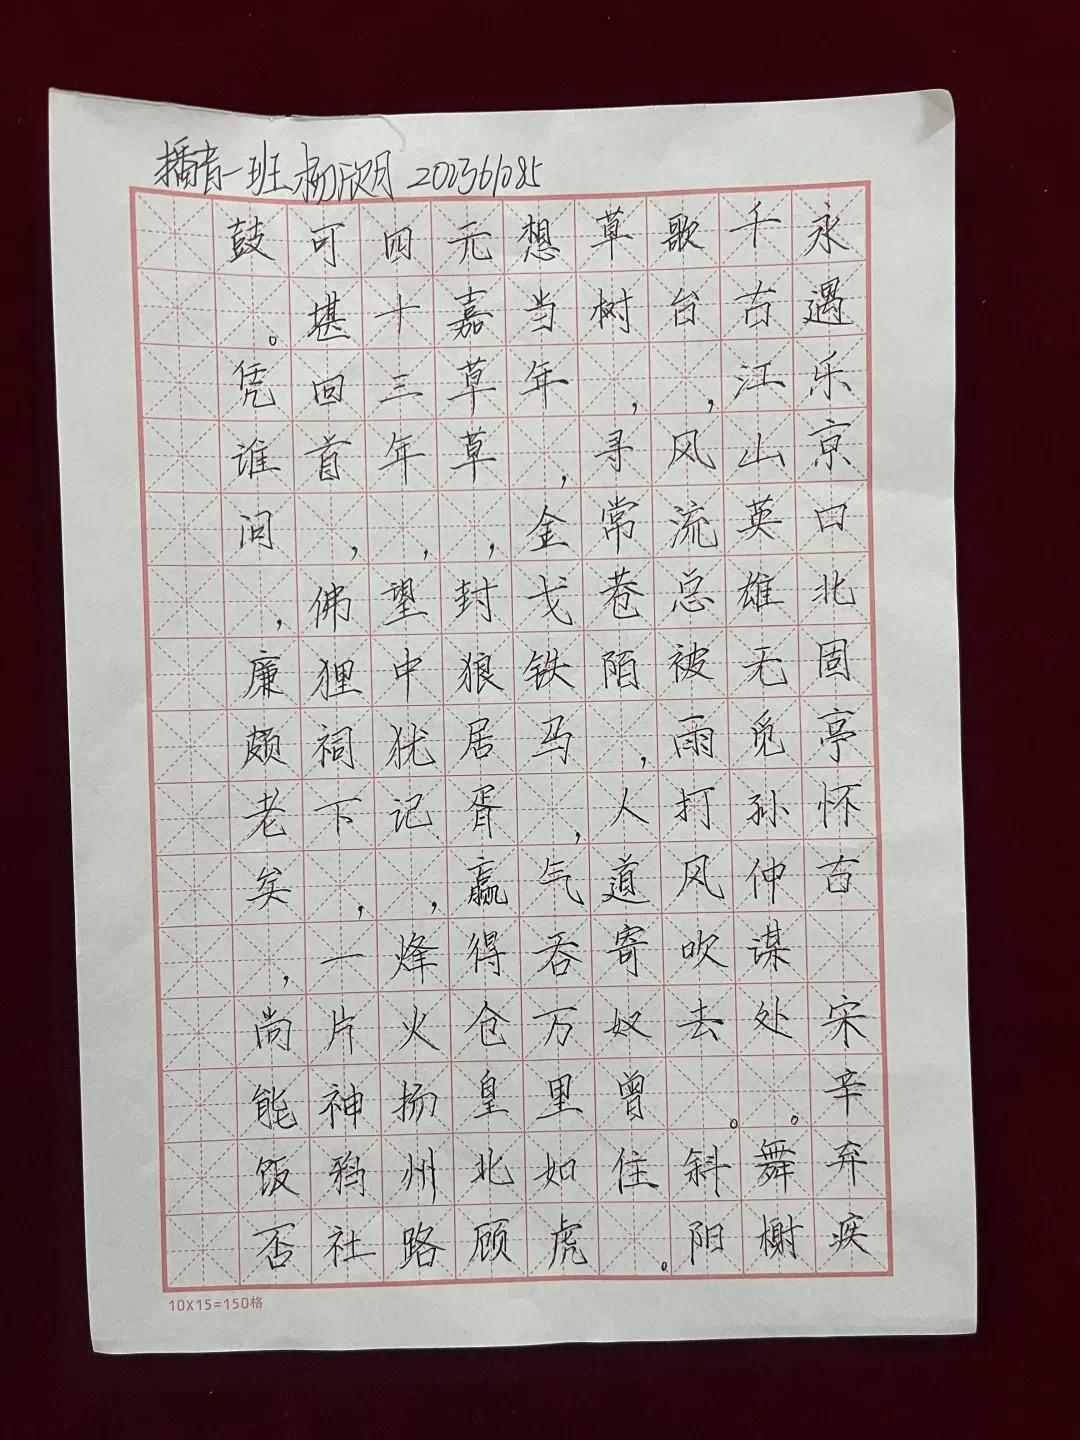 播音一班 杨欣月 202361085
永遇乐京口北固亭怀古 宋辛弃疾
千古江山英雄无觅孙仲谋处。舞榭
歌台，风流总被雨打风吹去。斜阳
草树，寻常巷陌，人道寄奴曾住。
想当年，金戈铁马，气吞万里如虎
元嘉草草，封狼居胥，赢得仓皇北顾
四十三年，望中犹记，烽火扬州路
可堪回首，佛狸祠下，一片神鸦社
鼓。凭谁问，廉颇老矣，尚能饭否
10X15=150格